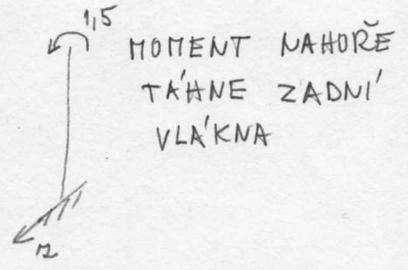 1,5
MOMENT NAHOŘE
TÁHNE ZADNÍ
VLÁKNA